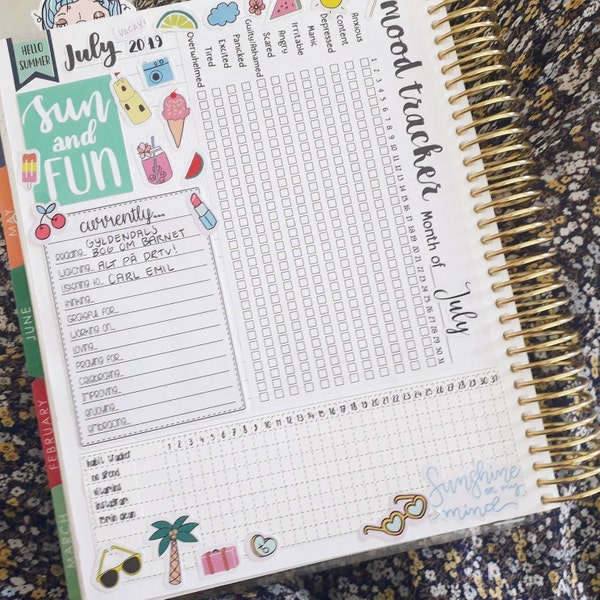 HELLO
SUMMER
July 2019
VACAY!
sun
and
FUN
currently...
GYLDENDALS
Reading... BOG OM BARNET
Watching... ALT PÅ DRTV!
Listening to... CARL EMIL
Thinking...
Grateful for...
Working on...
Loving...
Praying for...
Celebrating...
Improving...
Enjoying...
Embracing...
Overwhelmed
Tired
Excited
Panicked
Guilty/Ashamed
Scared
Angry
Irritable
Manic
Depressed
Content
Anxious
1 2 3 4 5 6 7 8 9 10 11 12 13 14 15 16 17 18 19 20 21 22 23 24 25 26 27 28 29 30 31
mood tracker
Month of July
1 2 3 4 5 6 7 8 9 10 11 12 13 14 15 16 17 18 19 20 21 22 23 24 25 26 27 28 29 30 31
habit tracker
no spend
vitamins
instagram
15min clean
Sunshine
on my
mind
MAY
JUNE
FEBRUARY
MARCH